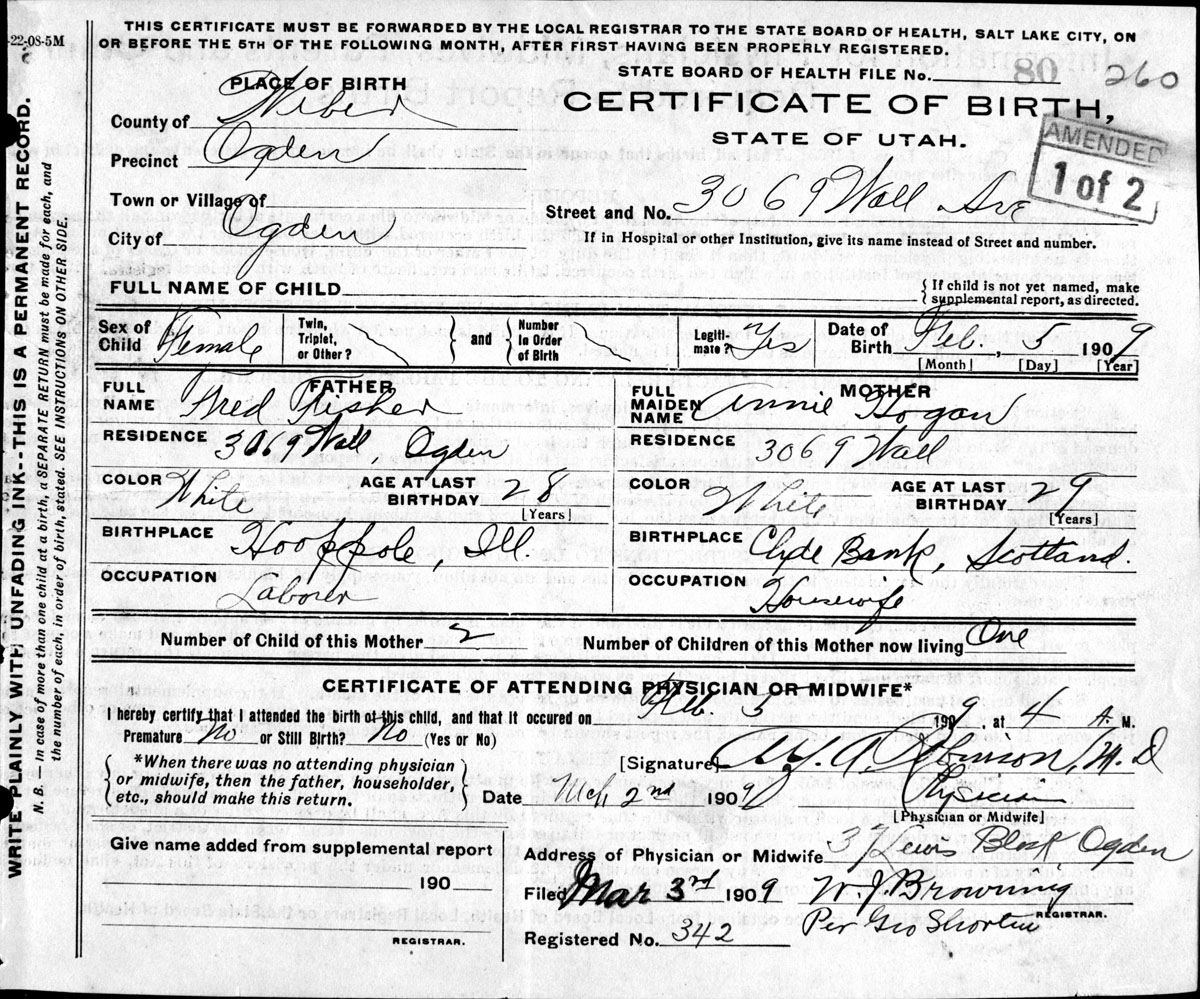 THIS CERTIFICATE MUST BE FORWARDED BY THE LOCAL REGISTRAR TO THE STATE BOARD OF HEALTH, SALT LAKE CITY, ON
OR BEFORE THE 5TH OF THE FOLLOWING MONTH, AFTER FIRST HAVING BEEN PROPERLY REGISTERED.
-22-08-5M
STATE BOARD OF HEALTH FILE No. 80 260
PLACE OF BIRTH
CERTIFICATE OF BIRTH,
STATE OF UTAH.
AMENDED
1 of 2
County of Weber
Precinct Ogden
Town or Village of
Street and No. 3069 Wall Ave
City of Ogden
If in Hospital or other Institution, give its name instead of Street and number.
FULL NAME OF CHILD
{ If child is not yet named, make
supplemental report, as directed.
Sex of Child Female
Twin, Triplet, or Other?
} and {
Number in Order of Birth
Legiti-mate? Yes
Date of Birth Feb. 5 1909
[Month] [Day] [Year]
FATHER
FULL NAME Fred Fisher
MOTHER
FULL MAIDEN NAME Annie Hogan
RESIDENCE 3069 Wall, Ogden
RESIDENCE 3069 Wall
COLOR White AGE AT LAST BIRTHDAY 28 [Years]
COLOR White AGE AT LAST BIRTHDAY 29 [Years]
BIRTHPLACE Hooppole, Ill.
BIRTHPLACE Clyde Bank, Scotland.
OCCUPATION Laborer
OCCUPATION Housewife
Number of Child of this Mother 2 Number of Children of this Mother now living One
CERTIFICATE OF ATTENDING PHYSICIAN OR MIDWIFE*
I hereby certify that I attended the birth of this child, and that it occured on Feb. 5 1909, at 4 A. M.
Premature No or Still Birth? No (Yes or No)
{ *When there was no attending physician
or midwife, then the father, householder,
etc., should make this return. }
[Signature] M. D
Date Mch 2nd 1909
Physician
[Physician or Midwife]
Give name added from supplemental report
190
REGISTRAR.
Address of Physician or Midwife 37 Lewis Block Ogden
Filed Mar 3rd 1909 W. J. Browning
REGISTRAR.
Per Geo Shorten
Registered No. 342
WRITE PLAINLY WITH UNFADING INK--THIS IS A PERMANENT RECORD.
N. B. In case of more than one child at a birth, a SEPARATE RETURN must be made for each, and
the number of each, in order of birth, stated. SEE INSTRUCTIONS ON OTHER SIDE.